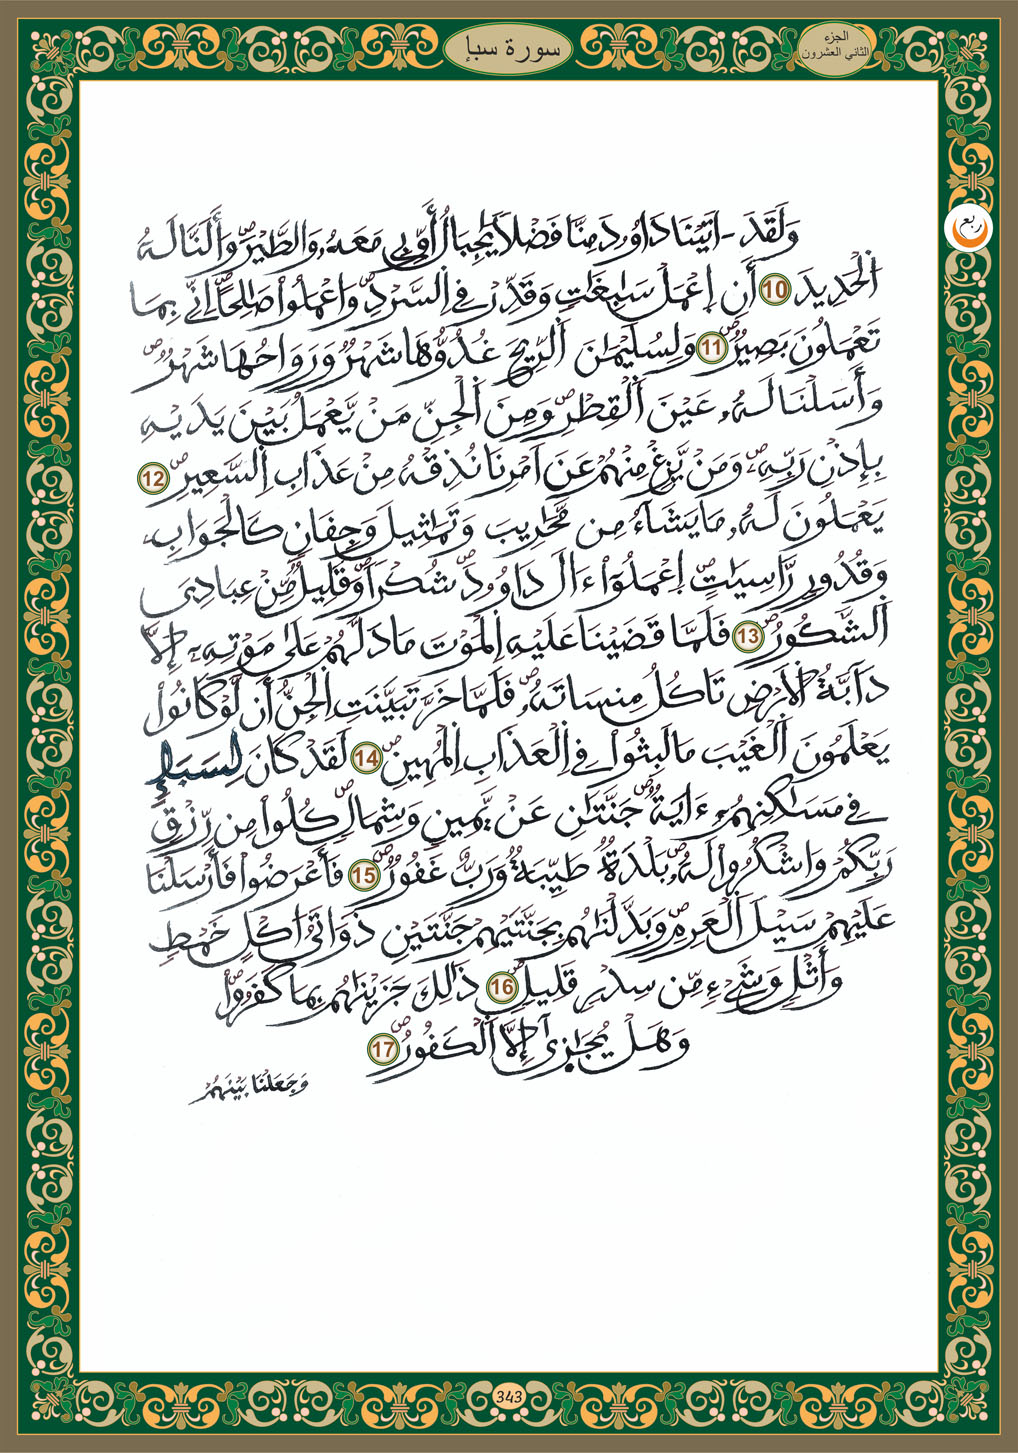 سورة سبإ
الجزء
الثاني العشرون
ربع
وَلَقَدَ اٰتَيْنَا دَاوُۥدَ مِنَّا فَضْلاً يَٰجِبَالُ أَوِّبِے مَعَهُۥ وَالطَّيْرَ وَأَلَنَّا لَهُ
اُ۬لْحَدِيدَ 10 أَنِ اِعْمَلْ سَٰبِغَٰتٍ وَقَدِّرْ فِے اِ۬لسَّرْدِ وَاعْمَلُواْ صَٰلِحاً اِنِّے بِمَا
تَعْمَلُونَ بَصِيرٌ 11 وَلِسُلَيْمَٰنَ اَ۬لرِّيحَ غُدُوُّهَا شَهْرٌ وَرَوَاحُهَا شَهْرٌ
وَأَسَلْنَا لَهُۥ عَيْنَ اَ۬لْقِطْرِ وَمِنَ اَ۬لْجِنِّ مَنْ يَّعْمَلُ بَيْنَ يَدَيْهِ
بِإِذْنِ رَبِّهِۦ وَمَنْ يَّزِغْ مِنْهُمْ عَنَ اَمْرِنَا نُذِقْهُ مِنْ عَذَابِ اِ۬لسَّعِيرِ 12
يَعْمَلُونَ لَهُۥ مَا يَشَآءُ مِن مَّحَٰرِيبَ وَتَمَٰثِيلَ وَجِفَانٍ كَالْجَوَابِۦ
وَقُدُورٍ رَّاسِيَٰتٍ اِعْمَلُوٓاْ ءَالَ دَاوُۥدَ شُكْراً وَقَلِيلٌ مِّنْ عِبَادِيَ
اَ۬لشَّكُورُ 13 فَلَمَّا قَضَيْنَا عَلَيْهِ اِ۬لْمَوْتَ مَا دَلَّهُمْ عَلَىٰ مَوْتِهِۦٓ إِلَّا
دَآبَّةُ اُ۬لَارْضِ تَاكُلُ مِنسَاتَهُۥ فَلَمَّا خَرَّ تَبَيَّنَتِ اِ۬لْجِنُّ أَن لَّوْ كَانُواْ
يَعْلَمُونَ اَ۬لْغَيْبَ مَا لَبِثُواْ فِے اِ۬لْعَذَابِ اِ۬لْمُهِينِ 14 لَقَدْ كَانَ لِسَبَإٍ
فِے مَسَٰكِنِهِمُۥٓ ءَايَةٌ جَنَّتَٰنِ عَنْ يَّمِينٍ وَشِمَالٍ كُلُواْ مِن رِّزْقِ
رَبِّكُمْ وَاشْكُرُواْ لَهُۥ بَلْدَةٌ طَيِّبَةٌ وَرَبٌّ غَفُورٌ 15 فَأَعْرَضُواْ فَأَرْسَلْنَا
عَلَيْهِمْ سَيْلَ اَ۬لْعَرِمِ وَبَدَّلْنَٰهُم بِجَنَّتَيْهِمْ جَنَّتَيْنِ ذَوَاتَىُ اكْلٍ خَمْطٍ
وَأَثْلٍ وَشَےْءٍ مِّن سِدْرٍ قَلِيلٍ 16 ذَٰلِكَ جَزَيْنَٰهُم بِمَا كَفَرُواْ
وَهَلْ يُجَٰزَىٰٓ إِلَّا اَ۬لْكَفُورُ 17
وَجَعَلْنَا بَيْنَهُمْ
343